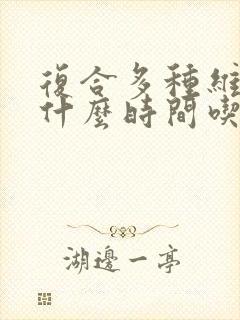 復合多種維
什麼時間喫
湖邊一亭